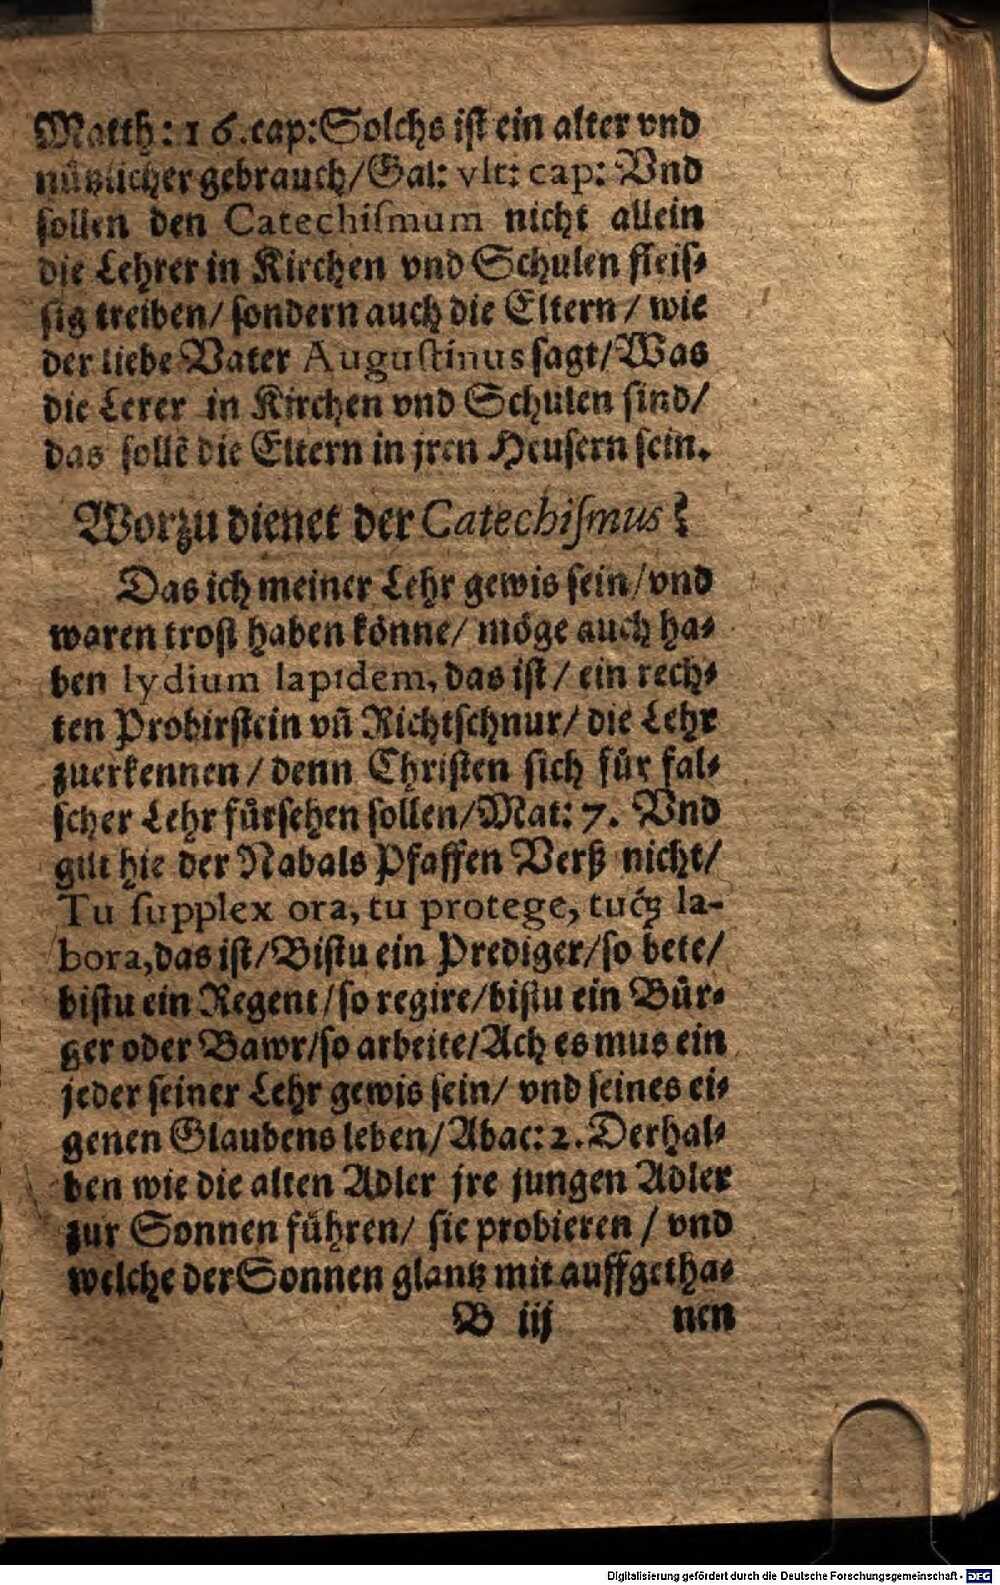 Matth: 16.cap: Solchs iſt ein alter vnd
nützlicher gebrauch/ Gal: vlt: cap: Vnd
ſollen den Catechiſmum nicht allein
die Lehrer in Kirchen vnd Schulen fleiſ⸗
ſig treiben/ ſondern auch die Eltern/ wie
der liebe Vater Auguſtinus ſagt/ Was
die Lerer in Kirchen vnd Schulen ſind/
das ſollẽ die Eltern in jren Heuſern ſein.
Worzu dienet der Catechiſmus?
Das ich meiner Lehr gewis ſein/ vnd
waren troſt haben könne/ möge auch ha⸗
ben lydium lapidem, das iſt/ ein rech⸗
ten Probirſtein vñ Richtſchnur/ die Lehr
zuerkennen/ denn Chriſten ſich für fal⸗
ſcher Lehr fürſehen ſollen/ Mat: 7. Vnd
gilt hie der Nabals Pfaffen Verß nicht/
Tu ſupplex ora, tu protege, tuq́ꝫ la-
bora, das iſt/ Biſtu ein Prediger/ ſo bete/
biſtu ein Regent/ ſo regire/ biſtu ein Bür⸗
ger oder Bawr/ ſo arbeite/ Ach es mus ein
jeder ſeiner Lehr gewis ſein/ vnd ſeines ei⸗
genen Glaubens leben/ Abac: 2. Derhal⸗
ben wie die alten Adler jre jungen Adler
zur Sonnen führen/ ſie probieren/ vnd
welche der Sonnen glantz mit auffgetha⸗
B iij nen
Digitalisierung gefördert durch die Deutsche Forschungsgemeinschaft - DFG